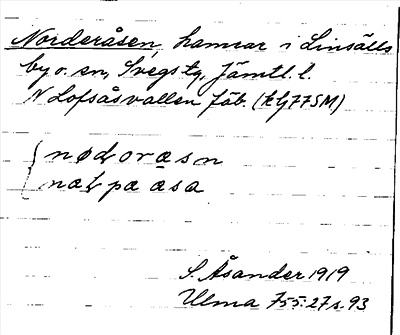 Norderåsen, hamrar i Linsälls
by o. sn, Svegs tg, Jämtl. l.
N Lofsåsvallen fäb. (kG77SM)
nødoræsn
næt pa åsa
S. Åsander 1919
Ulma 755:27 s. 93